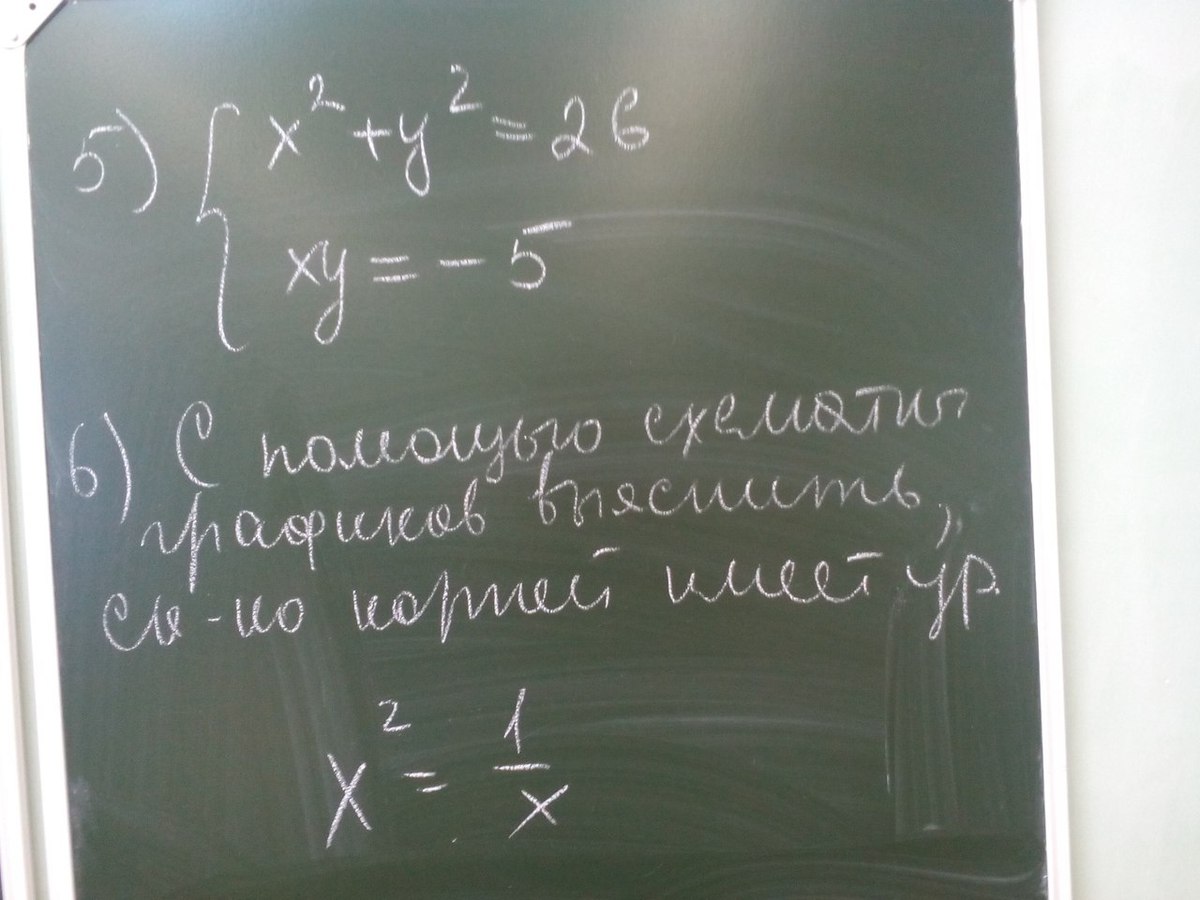 5) { x² + y² = 26
xy = -5
6) С помощью схематич
графиков выяснить,
ск-ко корней имеет ур.
x² = 1/x